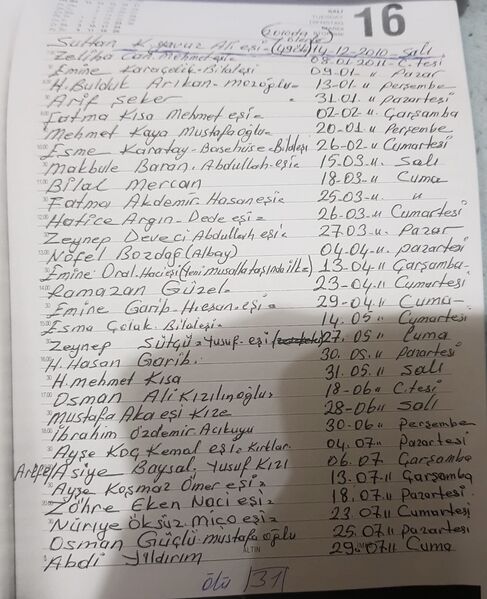 SALI
TUESDAY
16
Burada
ölenler
Sultan K. yavuz Ali eşi = (49dk) 14-12-2010 - Salı
Zeliha Can. Mehmet eşi 08-01-2011 - C.tesi
Emine Karaçelik - Bilal eşi 09-01 " Pazar
H. Bulduk Arıkan - 13-01 " Perşembe
Arif Şeker = 31.01 " Pazartesi
Fatma Kısa Mehmet eşi = 02-02-u. Çarşamba
Mehmet Kaya Mustafa oğlu = 20-01-u Perşembe
Esme Karatay - Bilal eşi 26-02-u Cumartesi
Makbule Baran. Abdullah eşi = 15.03-u. Salı
Bilal Mercan 18-03-u Cuma
Fatma Akdemir Hasan eşi = 25-03-u. "
Hatice Argın - Dede eşi = 26-03-u. Cumartesi
Zeynep Deveci Abdullah eşi = 27.03-u. Pazar
Nöfel Bozdağ (Albay) 04.04-u. pazartesi
Emine Oral. Hacı eşi (Yeni musalla taşında ilk=) 13-04 u Çarşamba-
Ramazan Güzel = 23-04 u Cumartesi
Emine Garib - Hasan. eşi = 29-04 u Cuma -
Esma Çolak. Bilal eşi = 14. 05 u Cumartesi
Zeynep Sütçü - Yusuf - eşi 27. 05 u Cuma
H. Hasan Garib. 30. 05. u Pazartesi
H. mehmet Kısa 31. 05 u Salı
Osman Ali Kızılınoğlu = 18-06 u C.tesi
Mustafa Aka eşi Kıze 28-06 u Salı
İbrahim Özdemir Acıkuyu 30-06 u Perşembe
Ayşe Koç Kemal eşi = Kırklar. 04. 07. u Pazartesi
(Arefe) Asiye Baysal. Yusuf Kızı 06. 07 Çarşamba
Ayşe Koşmaz Ömer eşi = 13. 07 u Çarşamba
Zöhre Eken Naci eşi = 18. 07 u Pazartesi
Nüriye Öksüz Miço eşi = 23. 07 u Cumartesi
Osman Güçlü - mustafa oğlu 25. 07 u pazartesi
Abdi Yıldırım 29. 07 u Cuma
ALTIN
Ölü 31